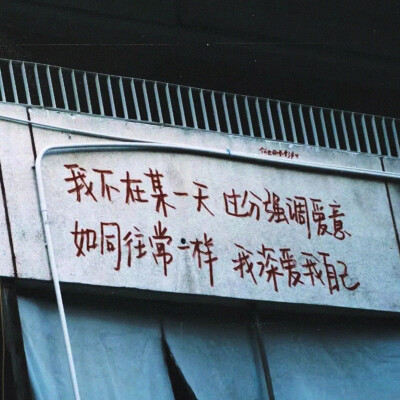 我不在某一天 过分强调爱意
如同往常一样 我深爱我自己